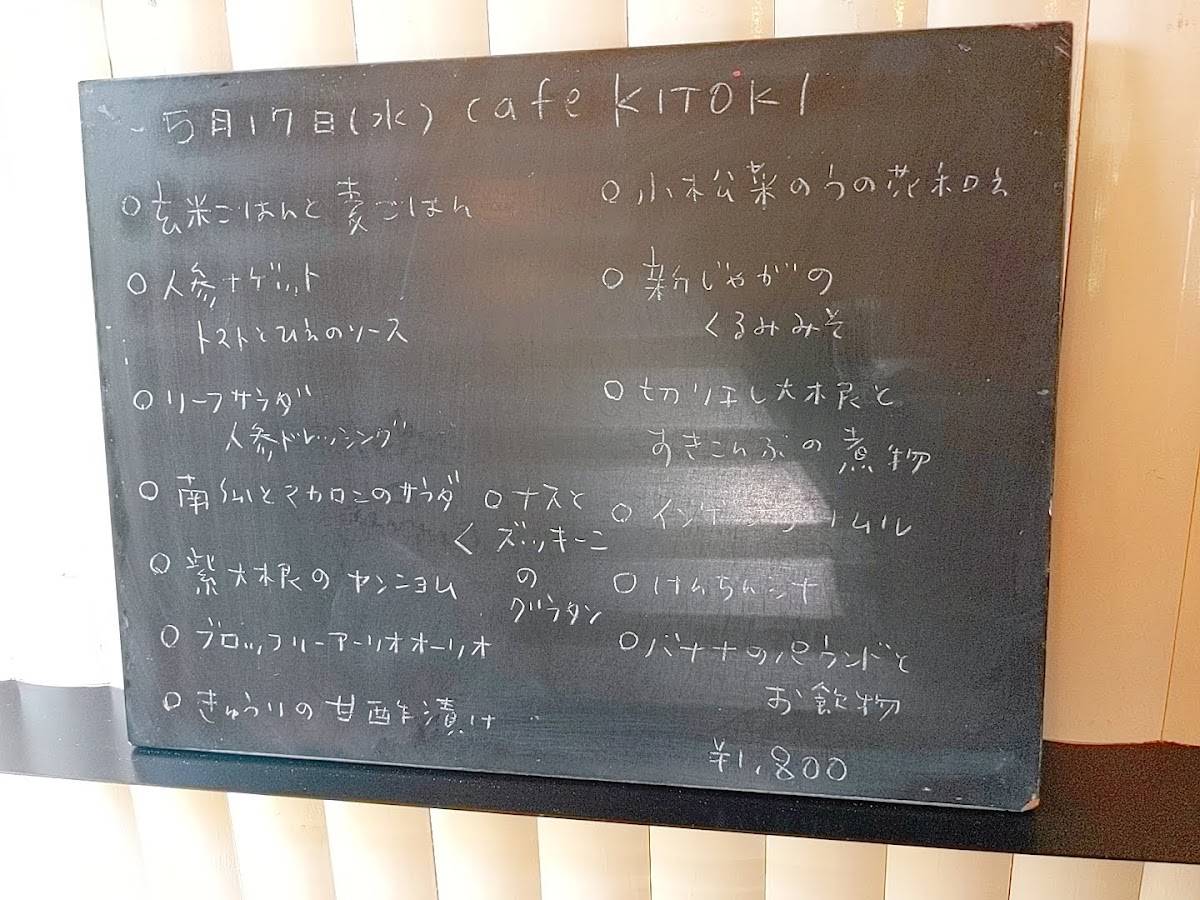 5月17日(水) cafe KITOKI
○玄米ごはんと麦ごはん
○人参ナゲット
トマトとひえのソース
○リーフサラダ
人参ドレッシング
○南仏とマカロニのサラダ
○紫大根のヤンニョム
○ブロッコリーアーリオオーリオ
○きゅうりの甘酢漬け
○ナスと
くズッキーニ
の
グラタン
○小松菜のうの花和え
○新じゃがの
くるみみそ
○切り干し大根と
すきこんぶの煮物
○インゲン ナムル
○けんちん
○バナナのパウンドと
お飲物
¥1,800